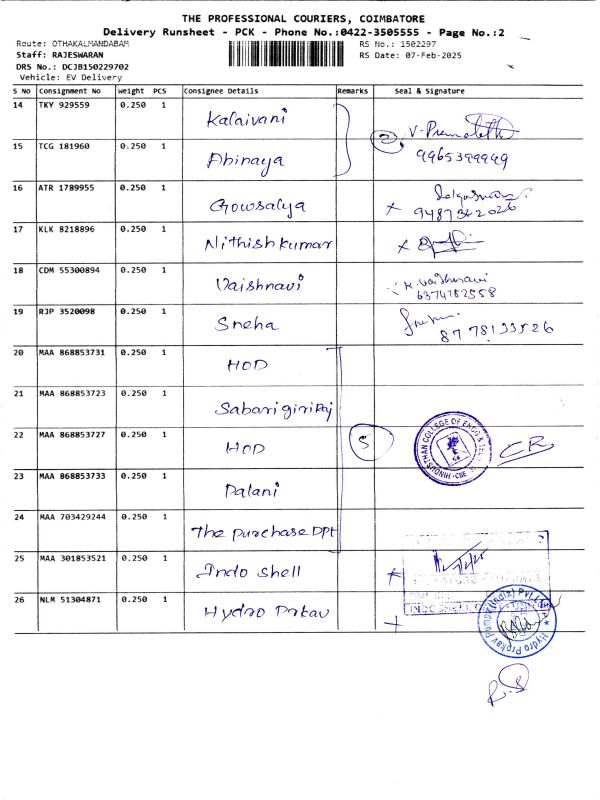 THE PROFESSIONAL COURIERS, COIMBATORE
Delivery Runsheet - PCK - Phone No.:0422-3505555 - Page No.:2
Route: OTHAKALMANDABAM
RS No.: 1502297
Staff: RAJESWARAN
RS Date: 07-Feb-2025
DRS No.: DCJB150229702
Vehicle: EV Delivery
S No Consignment No Weight PCS Consignee Details Remarks Seal & Signature
14 TKY 929559 0.250 1 Kalaivani
15 TCG 181960 0.250 1 Abinaya 2 9965399999
16 ATR 1789955 0.250 1 Gowsalya x 9487342026
17 KLK 8218896 0.250 1 Nithish kumar x
18 CDM 55300894 0.250 1 Vaishnavi K. Vaishnavi 6374782558
19 RJP 3520098 0.250 1 Sneha 8778133526
20 MAA 868853731 0.250 1 HOD
21 MAA 868853723 0.250 1 Sabarigiri Raj
22 MAA 868853727 0.250 1 HOD 5 HINDUSTHAN COLLEGE OF ENGG & TECH CBE
23 MAA 868853733 0.250 1 Palani
24 MAA 703429244 0.250 1 The purchase DPt
25 MAA 301853521 0.250 1 Indo shell x
26 NLM 51304871 0.250 1 Hydro Prkav x Hydro Prokav Pumps (India) Pvt Ltd